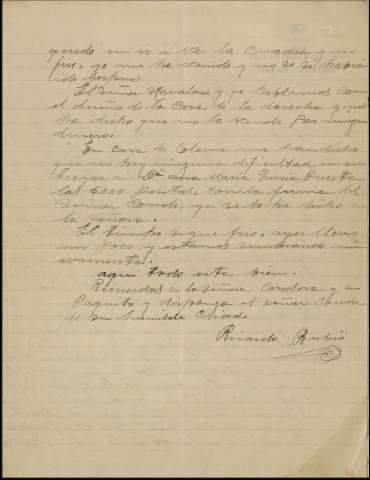 quedó en ir a ver la Cuadra y no
fue, yo no he venido y no se si habra
ido
El Señor Nevalous y yo hablamos con
el dueño de la Casa de la derecha y nos
ha dicho que no la vende por ningun
dinero.
En casa de Coloma me han dicho
que no hay ninguna dificultad en en
tregar a Dª Ana Maria Garcia
las 5000 pesetas con la firma del
Señor Conde, ya se lo he dicho a
la Señora.
El tiempo sigue frio, ayer llovio
un poco y estamos sembrando nu
evamente.
aqui todo esta bien.
Recuerdos a la Señora Condesa y a
Paquito y disponga el señor Conde
de su humilde Criado
Ricardo Rubio